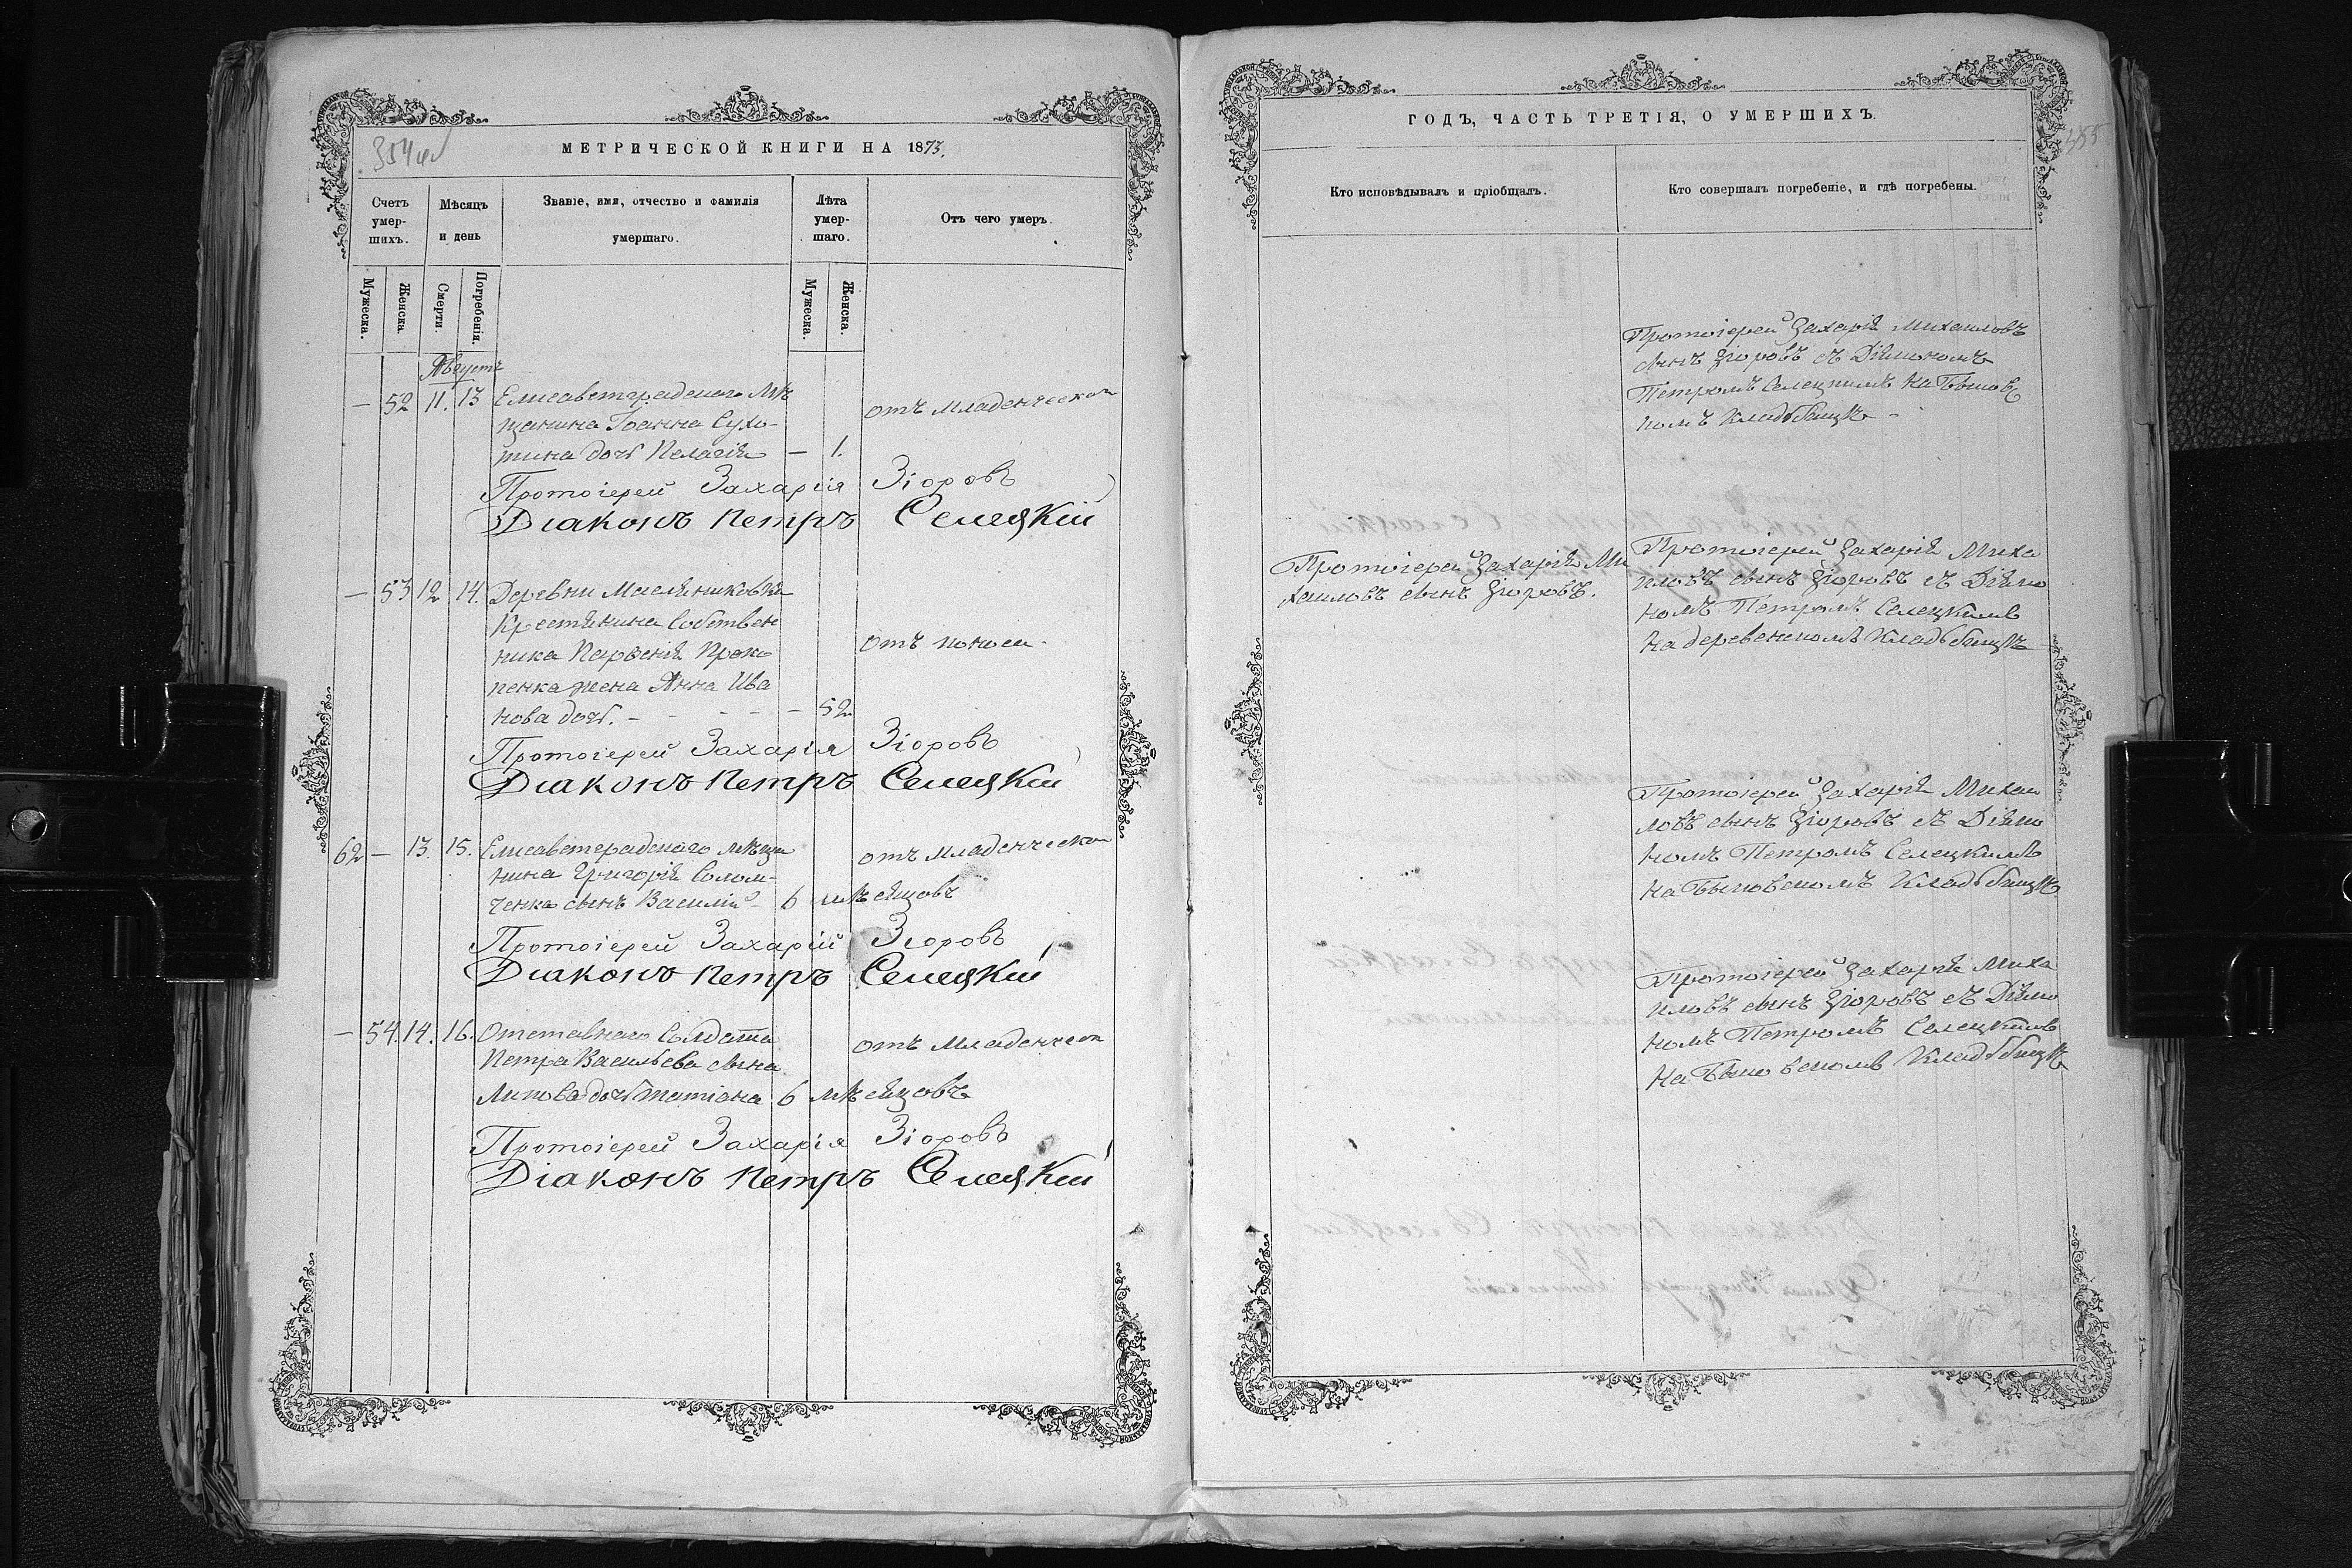 354 об
МЕТРИЧЕСКОЙ КНИГИ НА 1873.
Счетъ умер-шихъ.
Мѣсяцъ и день
Званіе, имя, отчество и фамилія умершаго.
Лѣта умер-шаго.
Отъ чего умеръ.
Мужеска.
Женска.
Смерти.
Погребенія.
Мужеска.
Женска.
Августъ
— 52 11. 13 Елисаветградскаго мѣ
щанина Іоанна Сухо-
тина дочь Пелагія — 1.
отъ младенческой
Протоіерей Захарія Зіоровъ
Діаконъ Петръ Селецкій
— 53 12 14. Деревни Масляниковки
Крестянина Собствен
ника Парѳенія Проко
пенка жена Анна Ива
нова дочь. - - - - — 52
отъ поноса
Протоіерей Захарія Зіоровъ
Діаконъ Петръ Селецкій
62 — 13. 15. Елисаветградскаго мѣща
нина Григорія Солом-
ченка сынъ Василій - 6 мѣсяцовъ
отъ младенческой
Протоіерей Захарій Зіоровъ
Діаконъ Петръ Селецкій
— 54. 14. 16. Отставнаго Солдата
Петра Васильева сына
дочь Татіана 6 мѣсяцовъ
отъ младенческой
Протоіерей Захарія Зіоровъ
Діаконъ Петръ Селецкій
355
ГОДЪ, ЧАСТЬ ТРЕТІЯ, О УМЕРШИХЪ.
Кто исповѣдывалъ и пріобщалъ.
Кто совершалъ погребеніе, и гдѣ погребены.
Протоіерей Захарія Михаиловъ
сынъ Зіоровъ съ Діякономъ
Петромъ Селецкимъ на Быковс
комъ кладббищѣ -
Протоіерей Захарія Ми
хаиловъ сынъ Зіоровъ.
Протоіерей Захарія Миха
иловъ сынъ Зіоровъ съ Діяко
номъ Петромъ Селецкимъ
на деревенскомъ кладьбищѣ
Протоіерей Захарія Михаи
ловъ сынъ Зіоровъ съ Діяко
номъ Петромъ Селецкимъ
на Быковскомъ кладьбищѣ
Протоіерей Захарія Миха
иловъ сынъ Зіоровъ съ Діяко
номъ Петромъ Селецкимъ
на Быковскомъ кладьбищѣ